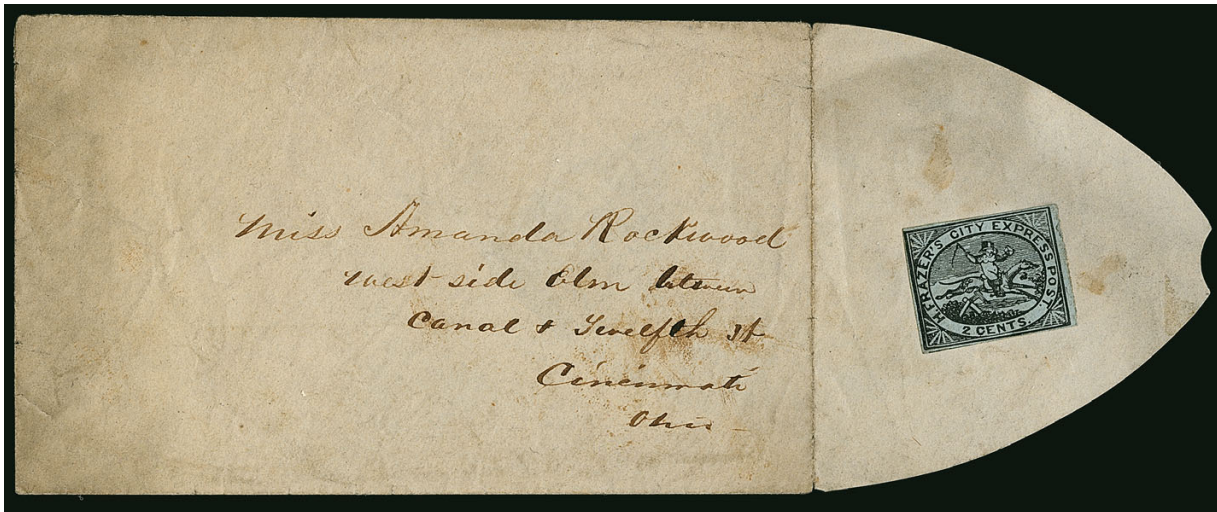 Miss Amanda Rockwood
west side Elm between
Canal & Twelfth st
Cincinnati
Ohio
H. FRAZER'S CITY EXPRESS POST
2 CENTS.